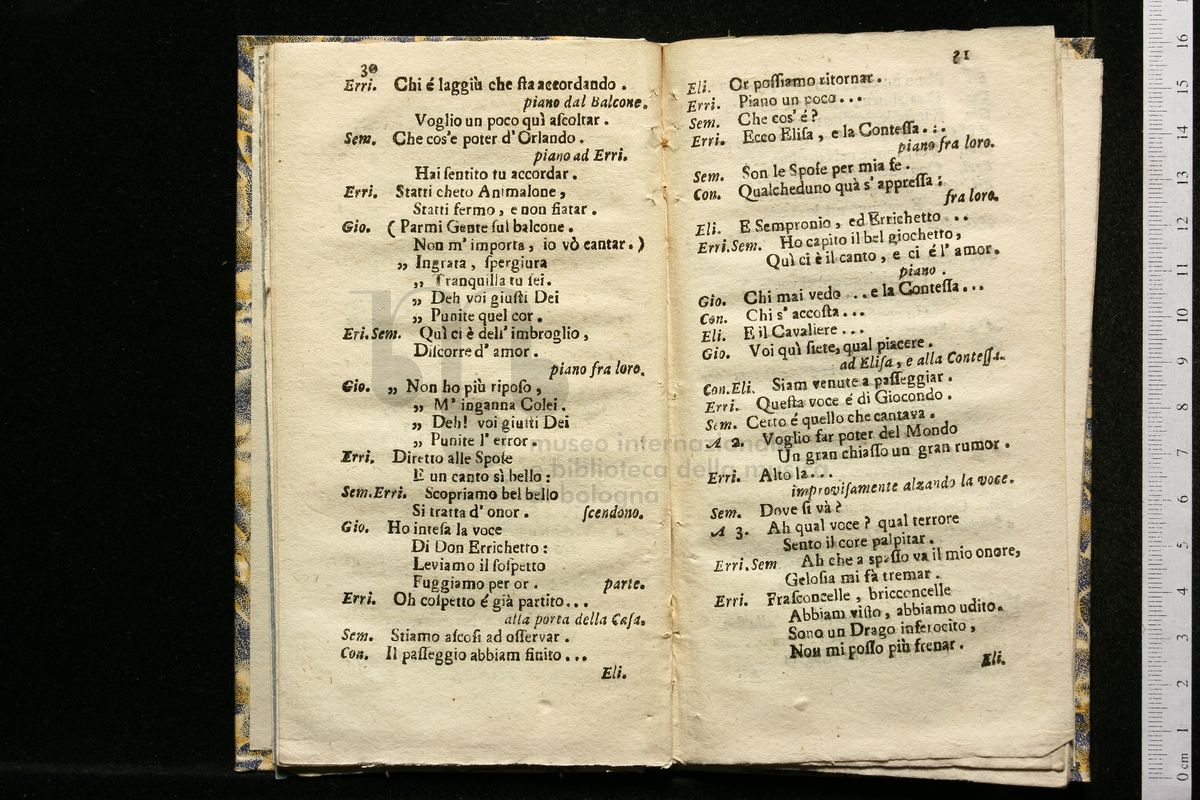 30
Erri. Chi é laggiù che ſta accordando.
piano dal Balcone.
Voglio un poco quì aſcoltar.
Sem. Che cos'e poter d'Orlando.
piano ad Erri.
Hai ſentito tu accordar.
Erri. Statti cheto Animalone,
Statti fermo, e non fiatar.
Gio. (Parmi Gente ſul balcone.
Non m'importa, io vò cantar.)
„ Ingrata, ſpergiura
„ Tranquilla tu ſei.
„ Deh voi giuſti Dei
„ Punite quel cor.
Eri.Sem. Quì ci è dell' imbroglio,
Diſcorre d'amor.
piano fra loro.
Gio. „ Non ho più ripoſo,
„ M'inganna Colei.
„ Deh! voi giuſti Dei
„ Punite l'error.
Erri. Diretto alle Spoſe
E un canto sì bello:
Sem.Erri. Scopriamo bel bello
Si tratta d'onor. ſcendono.
Gio. Ho inteſa la voce
Di Don Errichetto:
Leviamo il ſoſpetto
Fuggiamo per or. parte.
Erri. Oh coſpetto é già partito...
alla porta della Caſa.
Sem. Stiamo aſcoſi ad oſſervar.
Con. Il paſſeggio abbiam finito...
Eli.
31
Eli. Or poſſiamo ritornar.
Erri. Piano un poco...
Sem. Che cos'é?
Erri. Ecco Eliſa, e la Conteſſa...
piano fra loro.
Sem. Son le Spoſe per mia fe.
Con. Qualcheduno quà s'appreſſa:
fra loro.
Eli. E Sempronio, ed Errichetto ..
Erri.Sem. Ho capito il bel giochetto,
Quì ci è il canto, e ci é l'amor.
piano.
Gio. Chi mai vedo ...e la Conteſſa...
Con. Chi s'accoſta...
Eli. E il Cavaliere...
Gio. Voi quì ſiete, qual piacere.
ad Eliſa, e alla Conteſſa.
Con.Eli. Siam venute a paſſeggiar.
Erri. Queſta voce é di Giocondo.
Sem. Certo é quello che cantava.
A 2. Voglio far poter del Mondo
Un gran chiaſſo un gran rumor.
Erri. Alto la...
improviſamente alzando la voce.
Sem. Dove ſi và?
A 3. Ah qual voce? qual terrore
Sento il core palpitar.
Erri.Sem. Ah che a ſpaſſo va il mio onore,
Geloſia mi fà tremar.
Erri. Fraſconcelle, bricconcelle
Abbiam viſto, abbiamo udito.
Sono un Drago inferocito,
Non mi poſſo più frenar.
Eli.
museo internazionale
e biblioteca della musica
bologna
0 cm 1 2 3 4 5 6 7 8 9 10 11 12 13 14 15 16